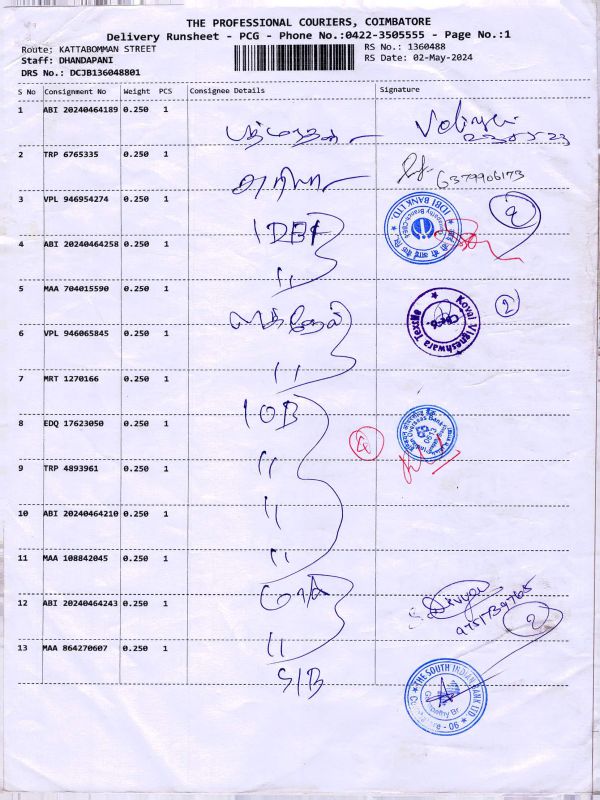 THE PROFESSIONAL COURIERS, COIMBATORE
Delivery Runsheet - PCG - Phone No.:0422-3505555 - Page No.:1
Route: KATTABOMMAN STREET
RS No.: 1360488
Staff: DHANDAPANI
RS Date: 02-May-2024
DRS No.: DCJB136048801
S No Consignment No Weight PCS Consignee Details Signature
1 ABI 20240464189 0.250 1
2 TRP 6765335 0.250 1
6379906173
3 VPL 946954274 0.250 1 IDBI
IDBI BANK LTD.
2
4 ABI 20240464258 0.250 1 "
5 MAA 704015590 0.250 1
Kovai Vigneshwara Textile
2
6 VPL 946065845 0.250 1 "
7 MRT 1270166 0.250 1 IOB
8 EDQ 17623050 0.250 1 "
Overseas Bank
4
9 TRP 4893961 0.250 1 "
10 ABI 20240464210 0.250 1 "
11 MAA 108842045 0.250 1
S. Divya
9751739765
12 ABI 20240464243 0.250 1 "
2
13 MAA 864270607 0.250 1 SIB
THE SOUTH INDIAN BANK LTD
Ganapathy Br
Coimbatore - 06